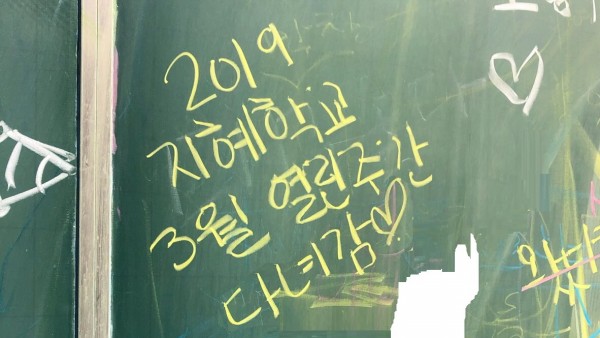 2019
지혜학교
3월 열린주간
다녀감♡